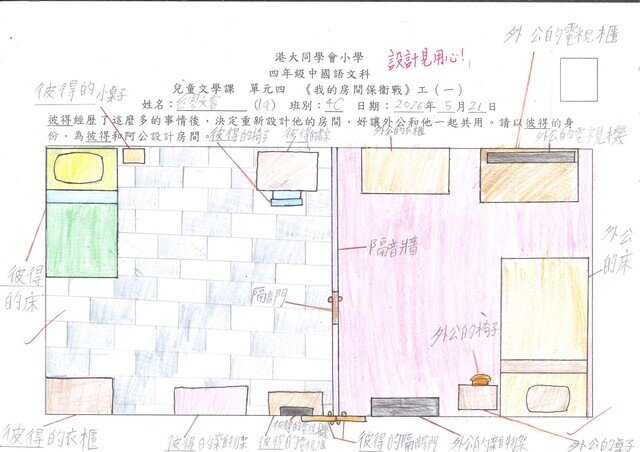 港大同學會小學
設計見用心!
外公的電視櫃
四年級中國語文科
彼得的小桌子
兒童文學課 單元四 《我的房間保衛戰》工(一)
姓名: (19) 班別: 4C 日期: 2026年5月21日
彼得經歷了這麼多的事情後,決定重新設計他的房間,好讓外公和他一起共用。請以彼得的身
份,為彼得和阿公設計房間。
彼得的椅子
外公的衣櫃
外公的電視機
隔音牆
外公的床
彼得的床
隔音門
外公的椅子
彼得的衣櫃
彼得的
彼得的電視櫃
彼得的隔音門
外公的
外公的桌子